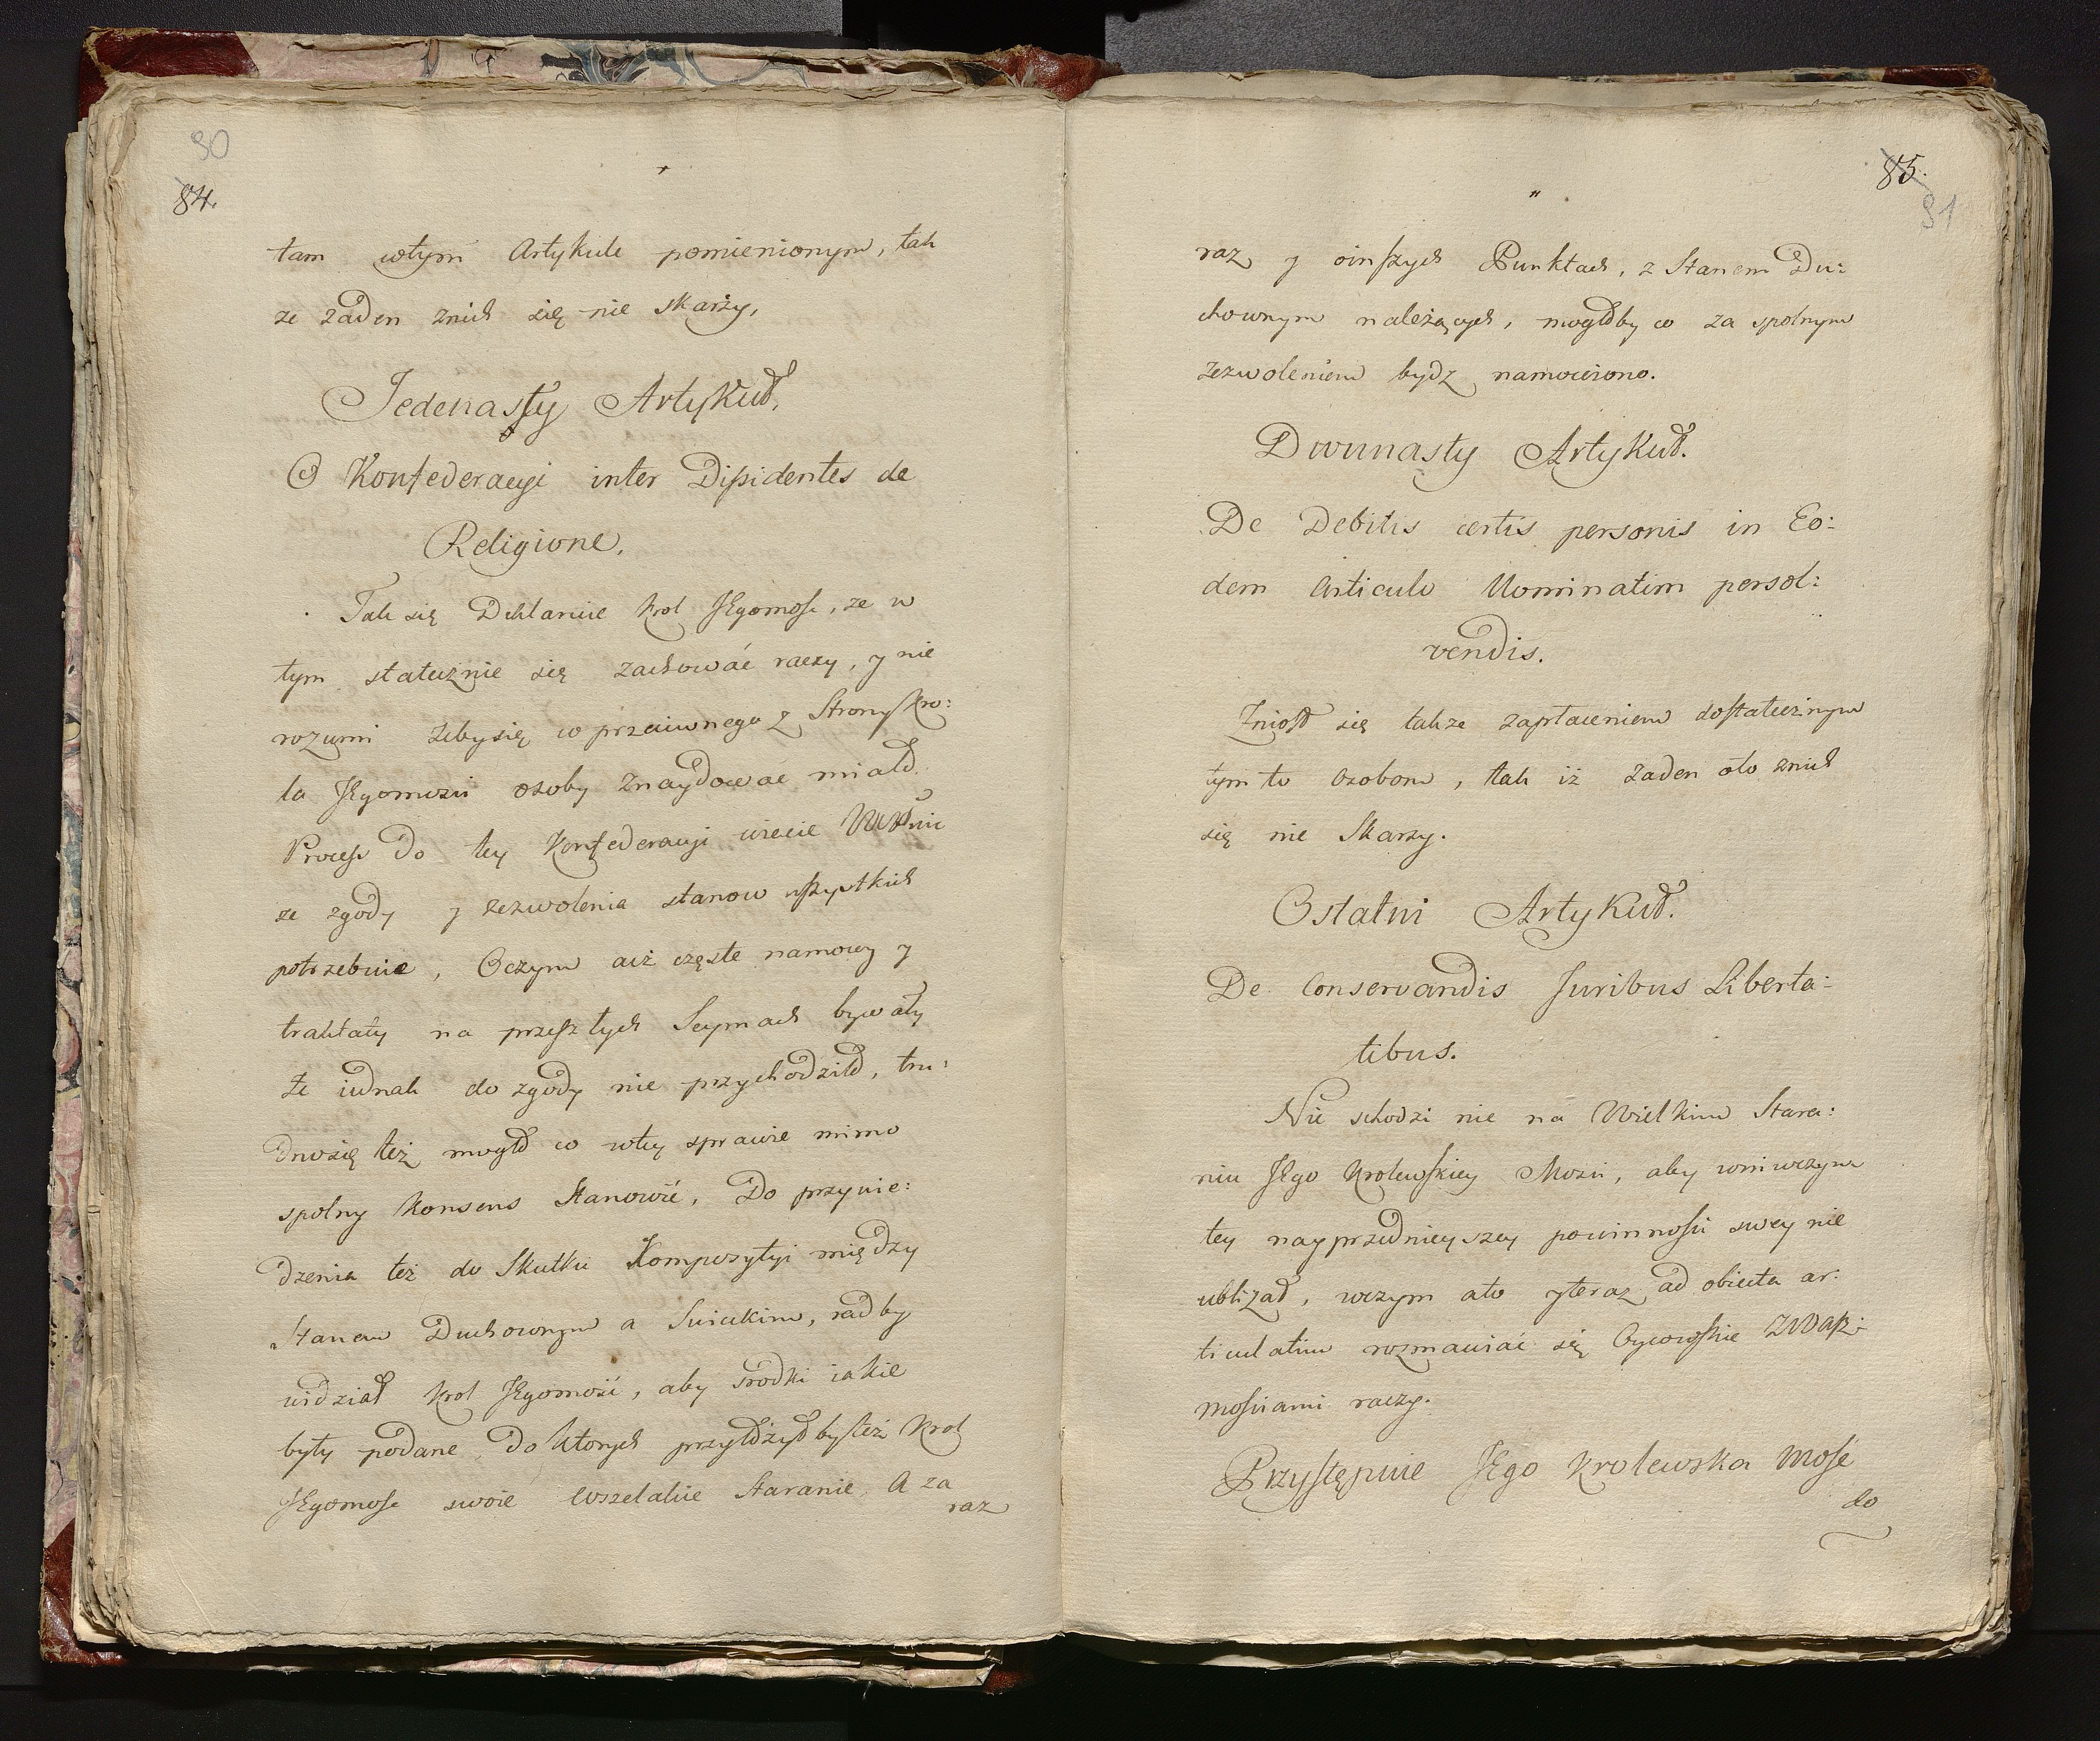 90
84.
tam wtym Artykule pomienionym, tak
ze zaden znich się nie skarży,
Jedenasty Artykuł,
O Konfederacyi inter Dissidentes de
Religione.
Tak się Deklaruie Krol JEgomość, ze w
tym statecznie się zachować raczy, y nie
rozumi zebysię co przeciwnego z Strony Kro:
la JEgomości osoby znaydować miało
Process do tey Konfederacyi
ze zgody y zezwolenia stanow wszystkich
potrzebuie, Oczym acż częste namowy y
traktaty na przeszłych Seymach bywały
że iednak do zgody nie przychodziło, tru:
dnosię też mogło co wtey sprawie mimo
spolny Konsens Stanowić, Do przywie:
dzenia też do Skutku Kompozytyi między
Stanem Duchownym a Swieckim, radby
widział Krol JEgomość, aby srodki iakie
były podane do ktorych przyłożyłbysteż Krol
JEgomość swoie Wszelakie Staranie, A za
raz
85.
91
raz y oinszych Punktach, z Stanem Du:
chownym należących, mogłoby co za spolnym
zezwoleniem bydz namowiono.
Dwunasty Artykuł.
De Debitis certis personis in Eo:
dem Articulo Nominatim persol:
vendis.
Zniosł się takze zapłaceniem dostatecznym
tym to Osobom, tak iż zaden oto znich
się nie Skarzy.
Ostatni Artykuł.
De Conservandis Juribus Liberta:
tibus.
Nie schodzi nic na Wielkim Stara:
niu JEgo Krolewskiey Mości, aby wniwczym
tey nayprzednieyszey powinności swey nie
ubliżał, wczym ato yteraz ad obiecta ar:
ticulatim rozmawiać się Oycowskie ZWasz:
mościami raczy.
Przystępuie JEgo Krolewska Mość
do